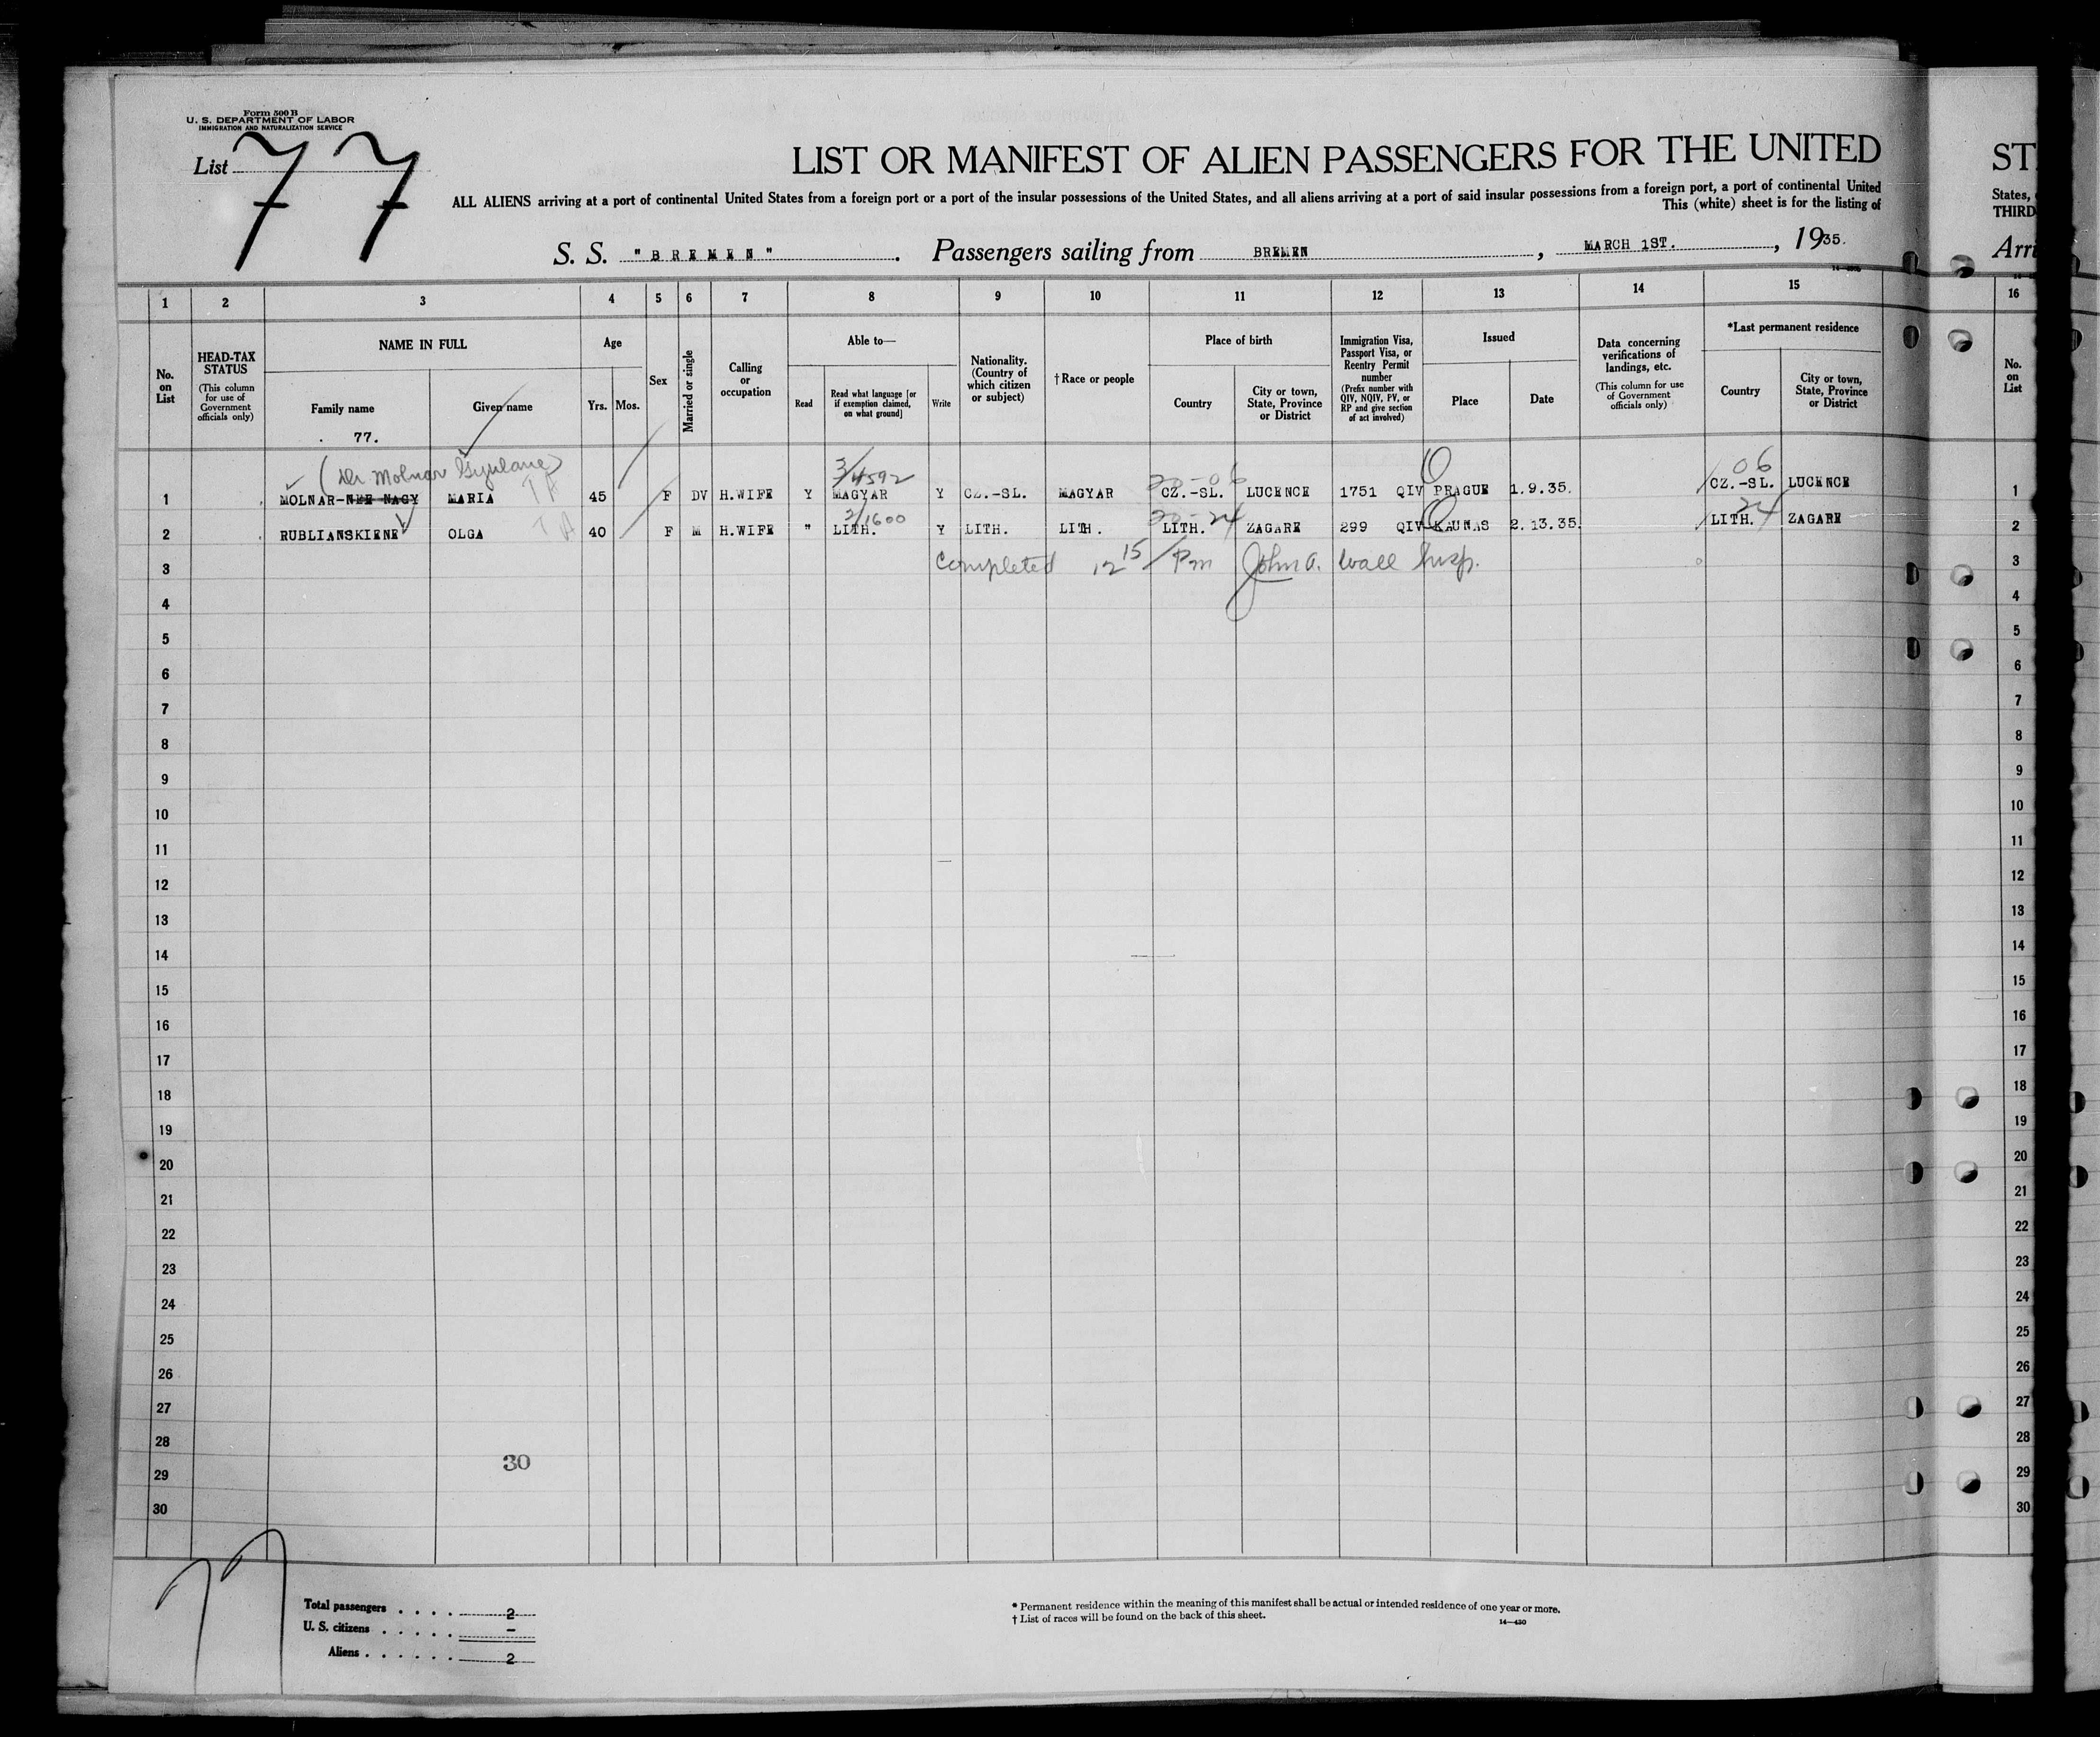 Form 500 B
U. S. DEPARTMENT OF LABOR
IMMIGRATION AND NATURALIZATION SERVICE
List 77
LIST OR MANIFEST OF ALIEN PASSENGERS FOR THE UNITED
ALL ALIENS arriving at a port of continental United States from a foreign port or a port of the insular possessions of the United States, and all aliens arriving at a port of said insular possessions from a foreign port, a port of continental United
This (white) sheet is for the listing of
S. S. "BREMEN". Passengers sailing from BREMEN, MARCH 1ST., 1935.
1 2 3 4 5 6 7 8 9 10 11 12 13 14 15
No. on List
HEAD-TAX STATUS
(This column for use of Government officials only)
NAME IN FULL
Family name
Given name
77.
Age
Yrs. Mos.
Sex
Married or single
Calling or occupation
Able to—
Read
Read what language [or if exemption claimed, on what ground]
Write
Nationality. (Country of which citizen or subject)
† Race or people
Place of birth
Country
City or town, State, Province or District
Immigration Visa, Passport Visa, or Reentry Permit number
(Prefix number with QIV, NQIV, PV, or RP and give section of act involved)
Issued
Place
Date
Data concerning verifications of landings, etc.
(This column for use of Government officials only)
*Last permanent residence
Country
City or town, State, Province or District
(Dr Molnar Gyulane) 3/4592 20-06 06
1 MOLNAR-NEE NAGY MARIA TA 45 F DV H.WIFE Y MAGYAR Y CZ.-SL. MAGYAR CZ.-SL. LUCENCE 1751 QIV PRAGUE 1.9.35. CZ.-SL. LUCENCE
2/1600 20-24 24
2 RUBLIANSKIENE OLGA TA 40 F M H.WIFE " LITH. Y LITH. LITH. LITH. ZAGARE 299 QIV KAUNAS 2.13.35. LITH. ZAGARE
3 Completed 12 15/Pm John A. Wall Insp.
4
5
6
7
8
9
10
11
12
13
14
15
16
17
18
19
20
21
22
23
24
25
26
27
28
29 30
30
77
Total passengers . . . . 2
U. S. citizens . . . . . –
Aliens . . . . . . 2
* Permanent residence within the meaning of this manifest shall be actual or intended residence of one year or more.
† List of races will be found on the back of this sheet.
14—430
ST
States,
THIRD
Arri
16
No. on List
1
2
3
4
5
6
7
8
9
10
11
12
13
14
15
16
17
18
19
20
21
22
23
24
25
26
27
28
29
30